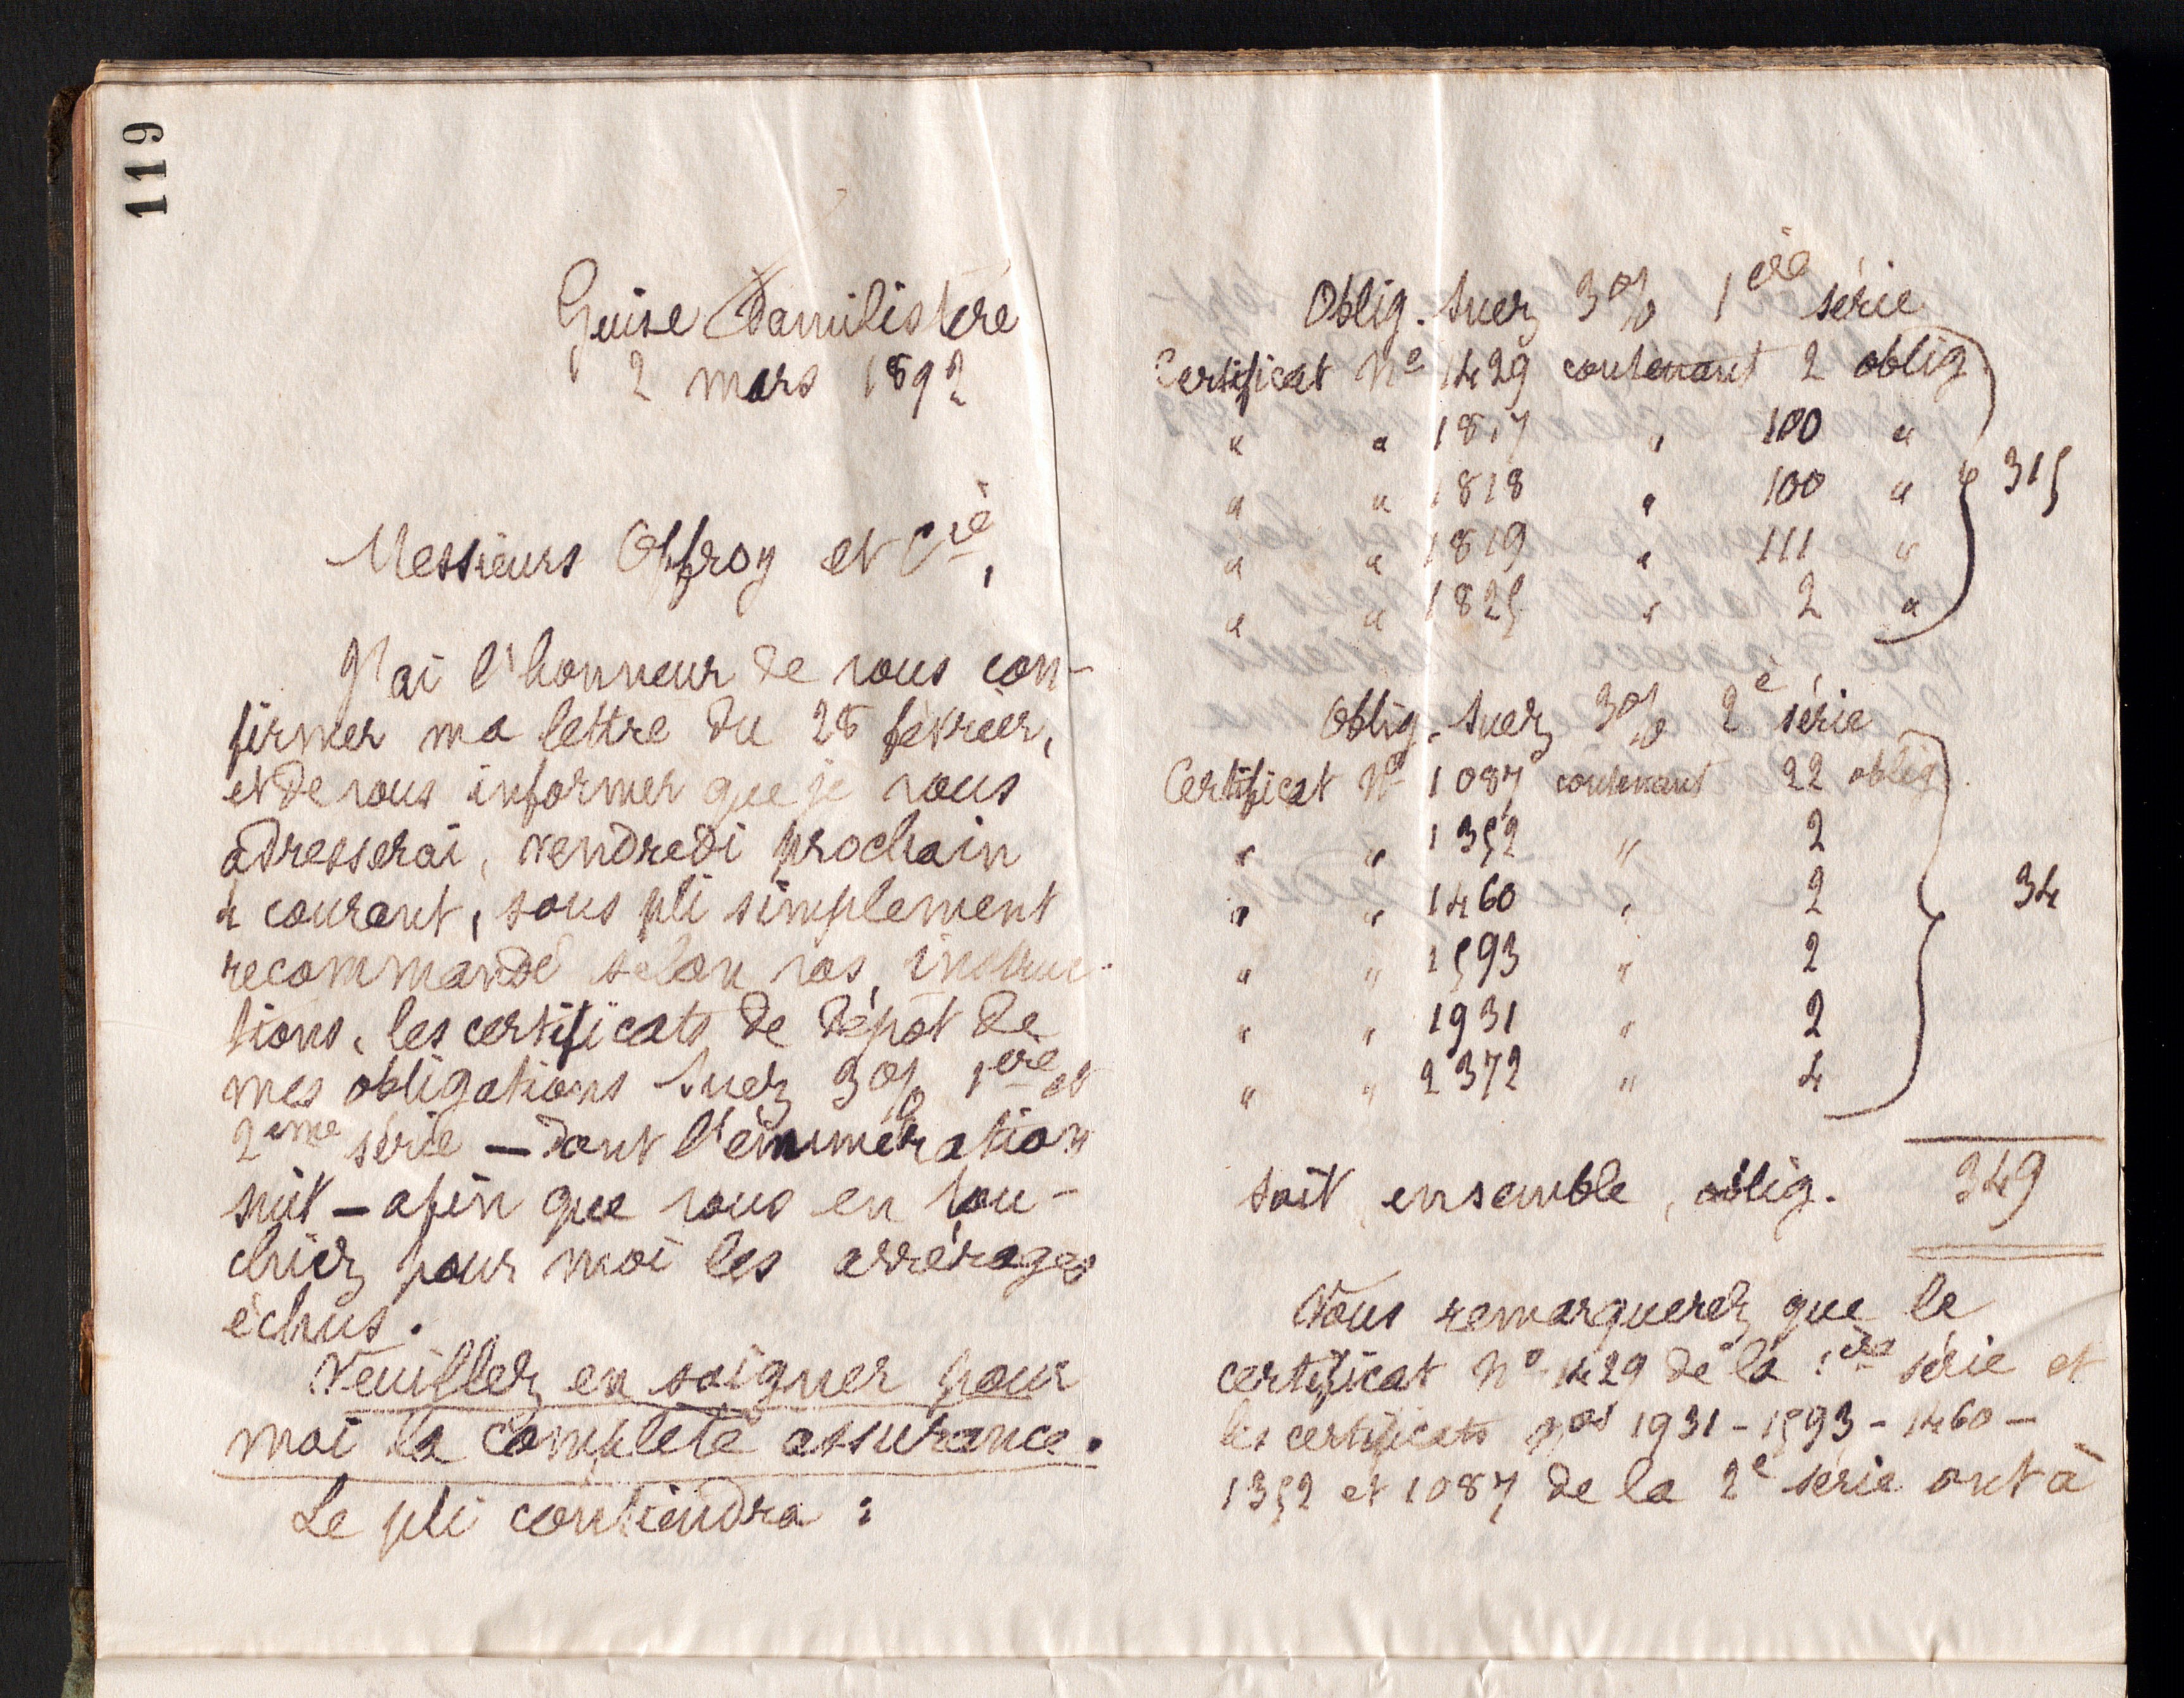 119
Guise Familistère
2 mars 1892
Messieurs Offroy et Cie,
J'ai l'honneur de vous con-
firmer ma lettre du 28 février,
et de vous informer que je vous
adresserai, vendredi prochain
4 courant, sous pli simplement
recommandé selon vos instruc-
tions, les certificats de dépôt de
mes obligations Suez 3% 1ère et
2ème série — dont l'énumération
suit — afin que vous en tou-
chiez pour moi les arrérages
échus.
Veuillez en soigner pour
moi la complète assurance.
Le pli contiendra :
Oblig. Suez 3% 1ère série
Certificat No 1429 contenant 2 oblig
" " 1817 " 100 "
" " 1818 " 100 " 315
" " 1819 " 111 "
" " 1825 " 2 "
Oblig. Suez 3% 2e série
Certificat No 1087 contenant 22 oblig
" " 1352 " 2
" " 1460 " 2 34
" " 1593 " 2
" " 1931 " 2
" " 2372 " 4
Soit ensemble, oblig. 349
Vous remarquerez que le
certificat No 1429 de la 1ère série et
les certificats nos 1931 - 1593 - 1460 -
1352 et 1087 de la 2e série ont à